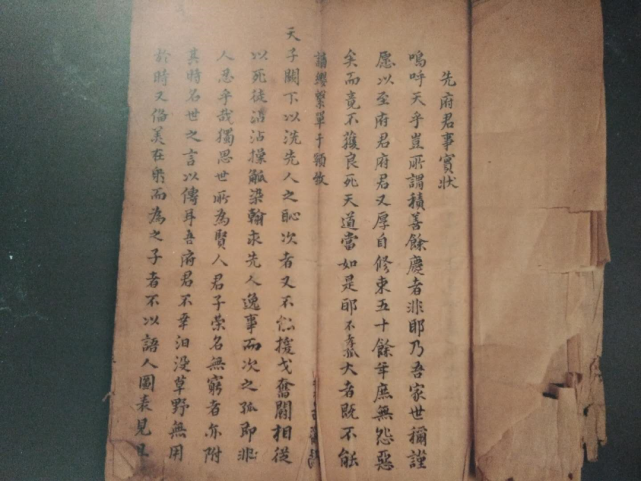 先府君事實狀
嗚呼天乎豈所謂積善餘慶者非耶乃吾家世稱謹
愿以至府君府君又厚自修束五十餘年庶無怨惡
矣而竟不獲良死天道當如是耶不孝孤大者既不能
請纓繫單于頸故
天子闕下以洗先人之恥次者又不能援戈奮鬪相從
以死徒沾沾操觚染翰求先人逸事而次之孤即非
人忍乎哉獨思世所為賢人君子榮名無窮者亦附
其時名世之言以傳耳吾府君不幸汩沒草野無用
於時又倫美在樂而為之子者不以語人圖表見